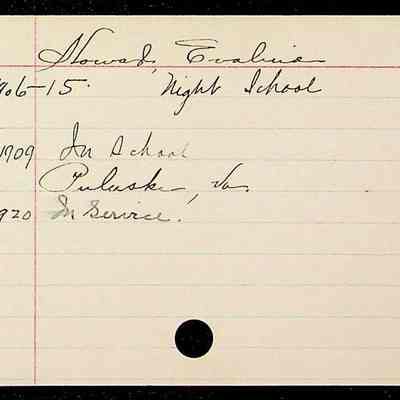 Howard, Evaline
906-15. Night School
1909 In School
Pulaski, Va.
920 In Service.